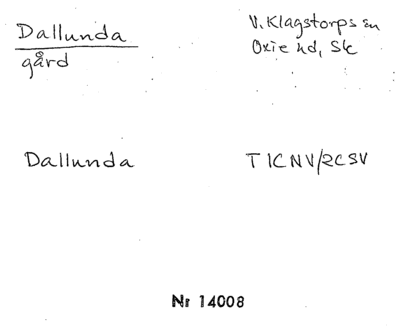 Dallunda
gård
V. Klagstorps sn
Oxie hd, Sk
Dallunda
T 1CNV/2CSV
Nr 14008